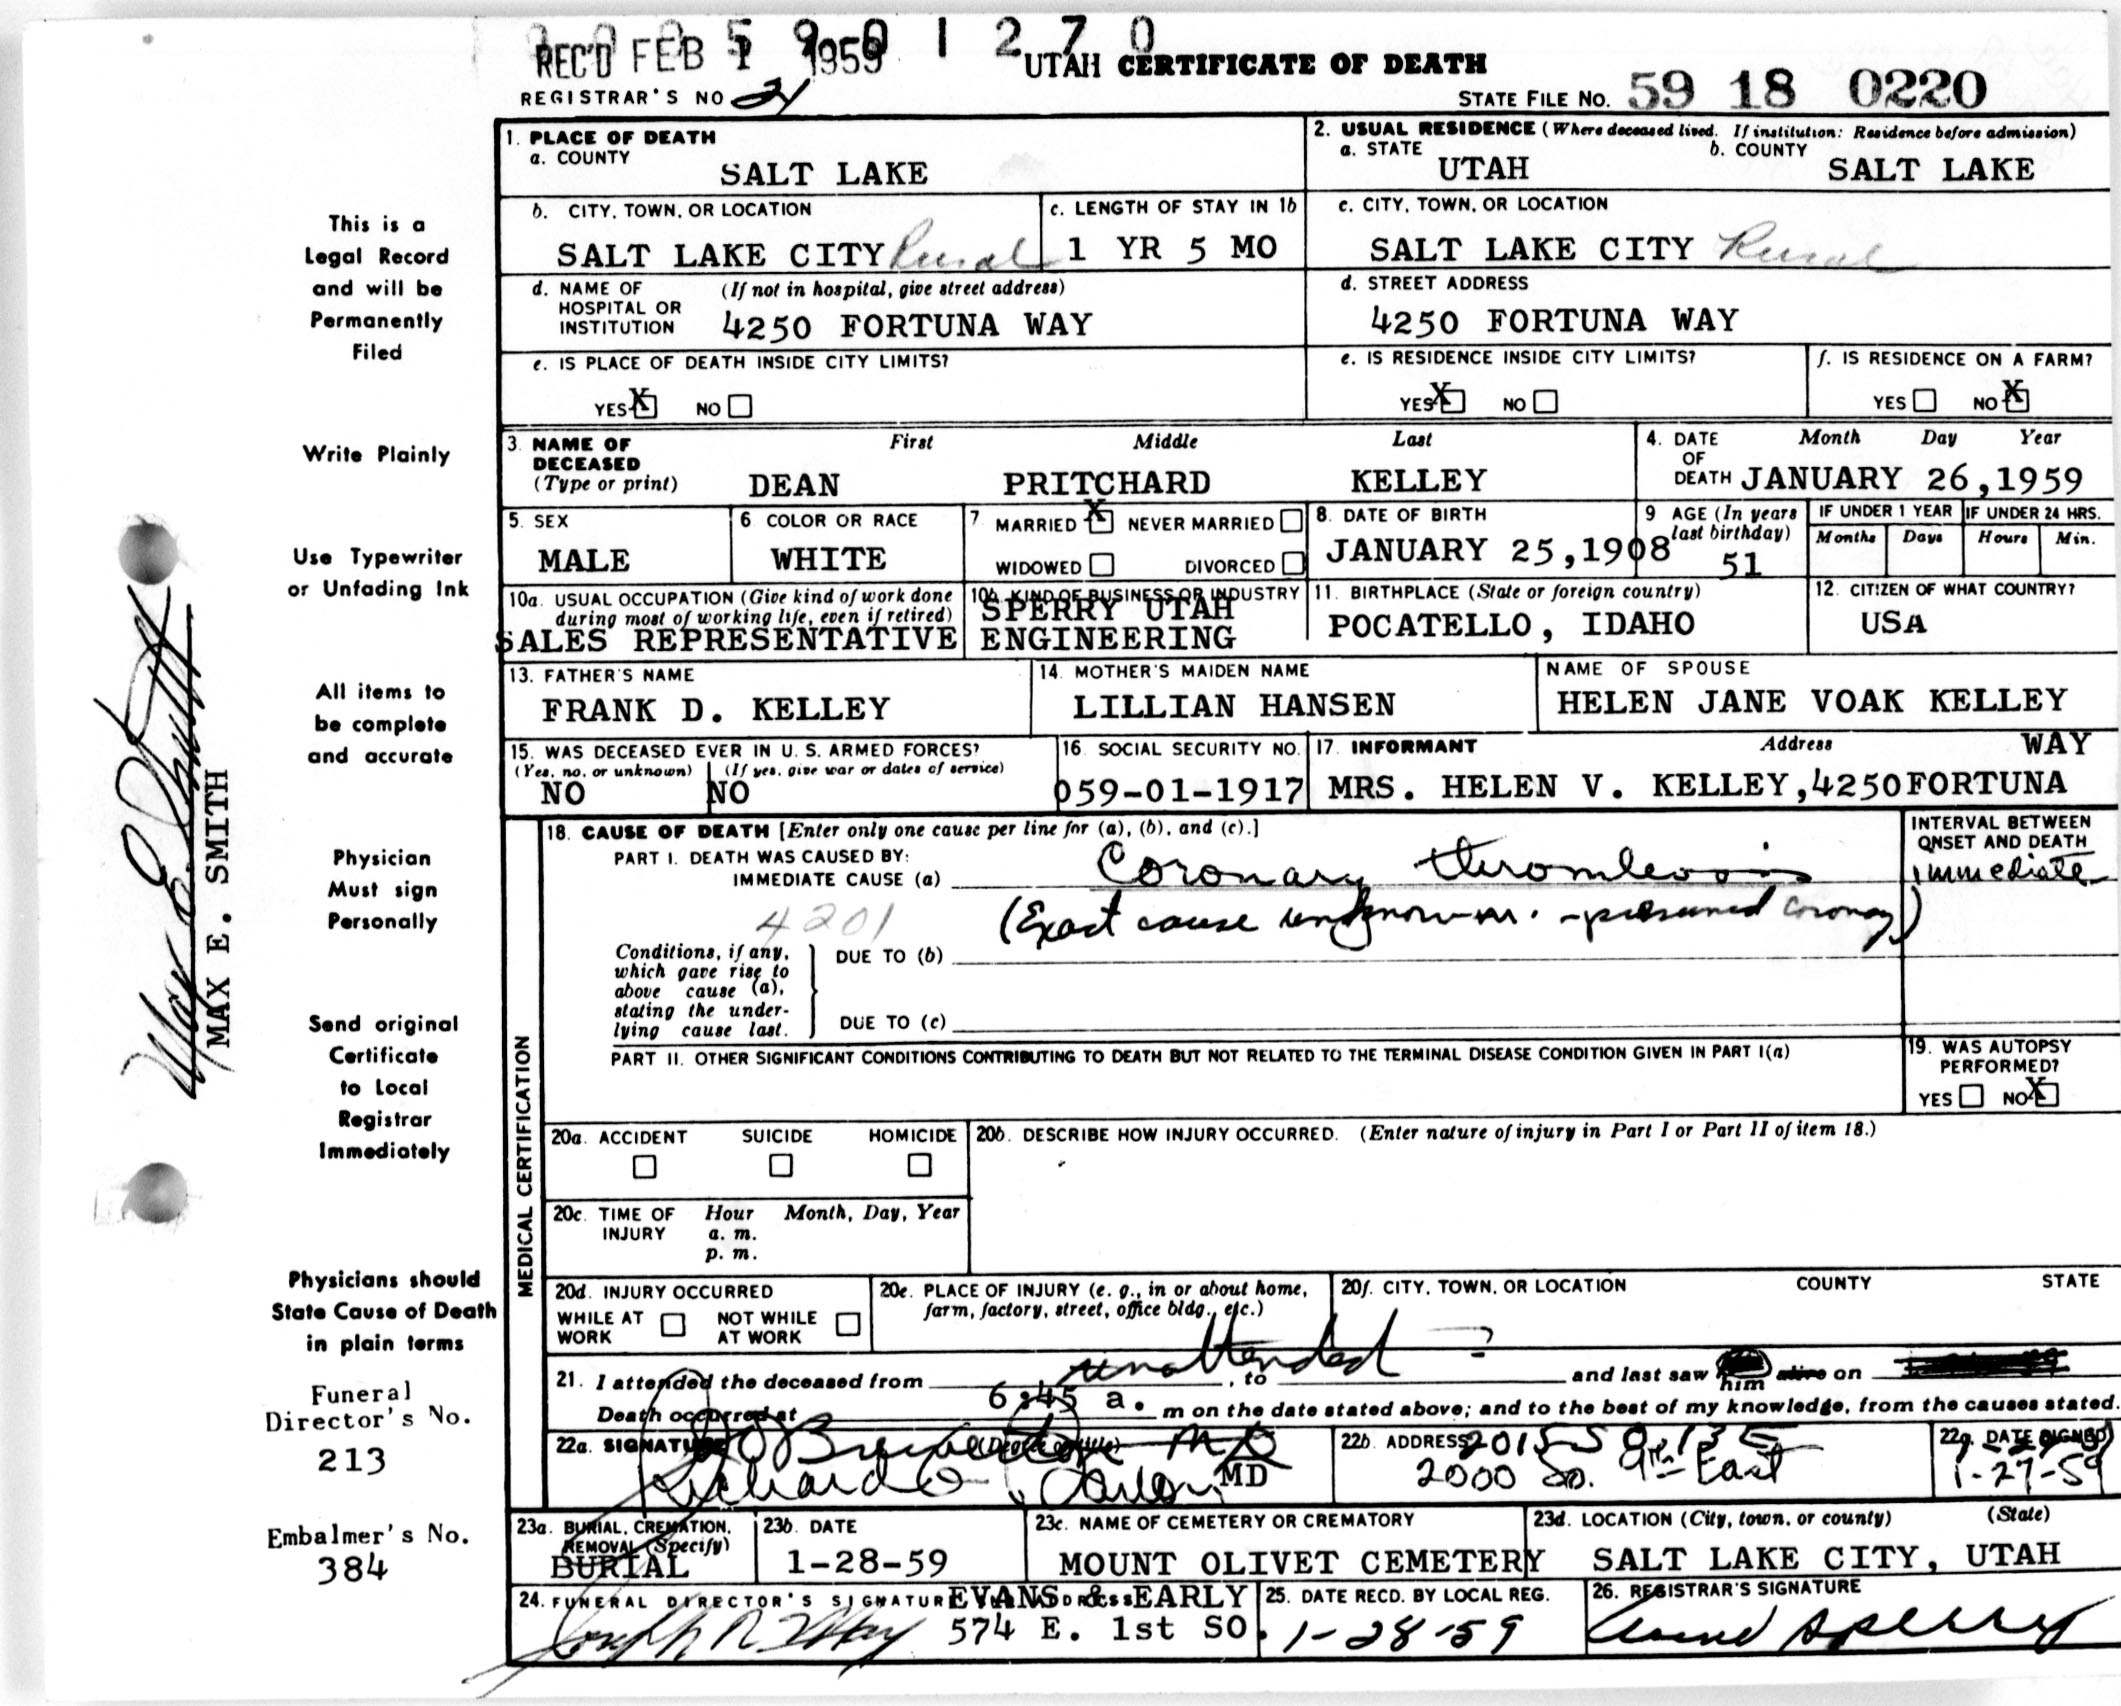 REC'D FEB 1959
0 0 0 5 9 0 1 2 7 0
UTAH CERTIFICATE OF DEATH
REGISTRAR'S NO 21
STATE FILE NO. 59 18 0220
1. PLACE OF DEATH
a. COUNTY
SALT LAKE
2. USUAL RESIDENCE (Where deceased lived. If institution: Residence before admission)
a. STATE b. COUNTY
UTAH SALT LAKE
b. CITY, TOWN, OR LOCATION
SALT LAKE CITY Rural
c. LENGTH OF STAY IN 1b
1 YR 5 MO
c. CITY, TOWN, OR LOCATION
SALT LAKE CITY Rural
d. NAME OF HOSPITAL OR INSTITUTION (If not in hospital, give street address)
4250 FORTUNA WAY
d. STREET ADDRESS
4250 FORTUNA WAY
e. IS PLACE OF DEATH INSIDE CITY LIMITS?
YES X NO
e. IS RESIDENCE INSIDE CITY LIMITS?
YES X NO
f. IS RESIDENCE ON A FARM?
YES NO X
3. NAME OF DECEASED (Type or print) First Middle Last
DEAN PRITCHARD KELLEY
4. DATE OF DEATH Month Day Year
JANUARY 26,1959
5. SEX
MALE
6 COLOR OR RACE
WHITE
7 MARRIED X NEVER MARRIED
WIDOWED DIVORCED
8. DATE OF BIRTH
JANUARY 25,1908
9 AGE (In years last birthday)
51
IF UNDER 1 YEAR IF UNDER 24 HRS.
Months Days Hours Min.
10a. USUAL OCCUPATION (Give kind of work done during most of working life, even if retired)
SALES REPRESENTATIVE
10b. KIND OF BUSINESS OR INDUSTRY
SPERRY UTAH
ENGINEERING
11. BIRTHPLACE (State or foreign country)
POCATELLO, IDAHO
12. CITIZEN OF WHAT COUNTRY?
USA
13. FATHER'S NAME
FRANK D. KELLEY
14. MOTHER'S MAIDEN NAME
LILLIAN HANSEN
NAME OF SPOUSE
HELEN JANE VOAK KELLEY
15. WAS DECEASED EVER IN U. S. ARMED FORCES?
(Yes, no, or unknown) (If yes, give war or dates of service)
NO NO
16. SOCIAL SECURITY NO.
059-01-1917
17. INFORMANT Address WAY
MRS. HELEN V. KELLEY,4250FORTUNA
MEDICAL CERTIFICATION
18. CAUSE OF DEATH [Enter only one cause per line for (a), (b), and (c).]
PART I. DEATH WAS CAUSED BY:
IMMEDIATE CAUSE (a) Coronary thrombosis
INTERVAL BETWEEN ONSET AND DEATH
immediate
4201
(Exact cause unknown. - presumed coronary)
Conditions, if any, which gave rise to above cause (a), stating the underlying cause last.
DUE TO (b)
DUE TO (c)
PART II. OTHER SIGNIFICANT CONDITIONS CONTRIBUTING TO DEATH BUT NOT RELATED TO THE TERMINAL DISEASE CONDITION GIVEN IN PART I(a)
19. WAS AUTOPSY PERFORMED?
YES NO X
20a. ACCIDENT SUICIDE HOMICIDE
20b. DESCRIBE HOW INJURY OCCURRED. (Enter nature of injury in Part I or Part II of item 18.)
20c. TIME OF INJURY Hour Month, Day, Year
a. m.
p. m.
20d. INJURY OCCURRED
WHILE AT WORK NOT WHILE AT WORK
20e. PLACE OF INJURY (e. g., in or about home, farm, factory, street, office bldg., etc.)
20f. CITY, TOWN, OR LOCATION COUNTY STATE
21. I attended the deceased from unattended ?, to and last saw him alive on
Death occurred at 6:45 a. m on the date stated above; and to the best of my knowledge, from the causes stated.
22a. SIGNATURE (Degree or title) MD
Richard O. MD
22b. ADDRESS
2000 So. 9th East
22c. DATE SIGNED
1-27-59
23a. BURIAL, CREMATION, REMOVAL (Specify)
BURIAL
23b. DATE
1-28-59
23c. NAME OF CEMETERY OR CREMATORY
MOUNT OLIVET CEMETERY
23d. LOCATION (City, town, or county) (State)
SALT LAKE CITY, UTAH
24. FUNERAL DIRECTOR'S SIGNATURE ADDRESS
EVANS & EARLY
574 E. 1st SO.
25. DATE RECD. BY LOCAL REG.
1-28-59
26. REGISTRAR'S SIGNATURE
Sperry
This is a
Legal Record
and will be
Permanently
Filed
Write Plainly
Use Typewriter
or Unfading Ink
All items to
be complete
and accurate
Physician
Must sign
Personally
Send original
Certificate
to Local
Registrar
Immediately
Physicians should
State Cause of Death
in plain terms
Funeral
Director's No.
213
Embalmer's No.
384
Max E. Smith
MAX E. SMITH